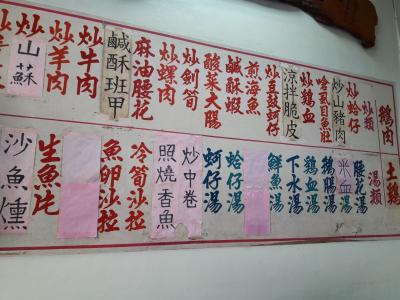 鵝肉
炒類
炒蛤仔
炒山豬肉
嗆虱目魚肚
炒鷄血
涼拌脆皮
炒豆鼓蚵仔
煎海魚
鹹酥蝦
酸菜大腸
炒劍筍
炒螺肉
麻油腰花
鹹酥班甲
炒牛肉
炒羊肉
炒山蘇
土鷄
湯類
腰花湯
米血湯
鵝腸湯
鷄血湯
下水湯
鮮魚湯
蛤仔湯
蚵仔湯
炒中卷
照燒香魚
冷筍沙拉
魚卵沙拉
生魚片
沙魚燻